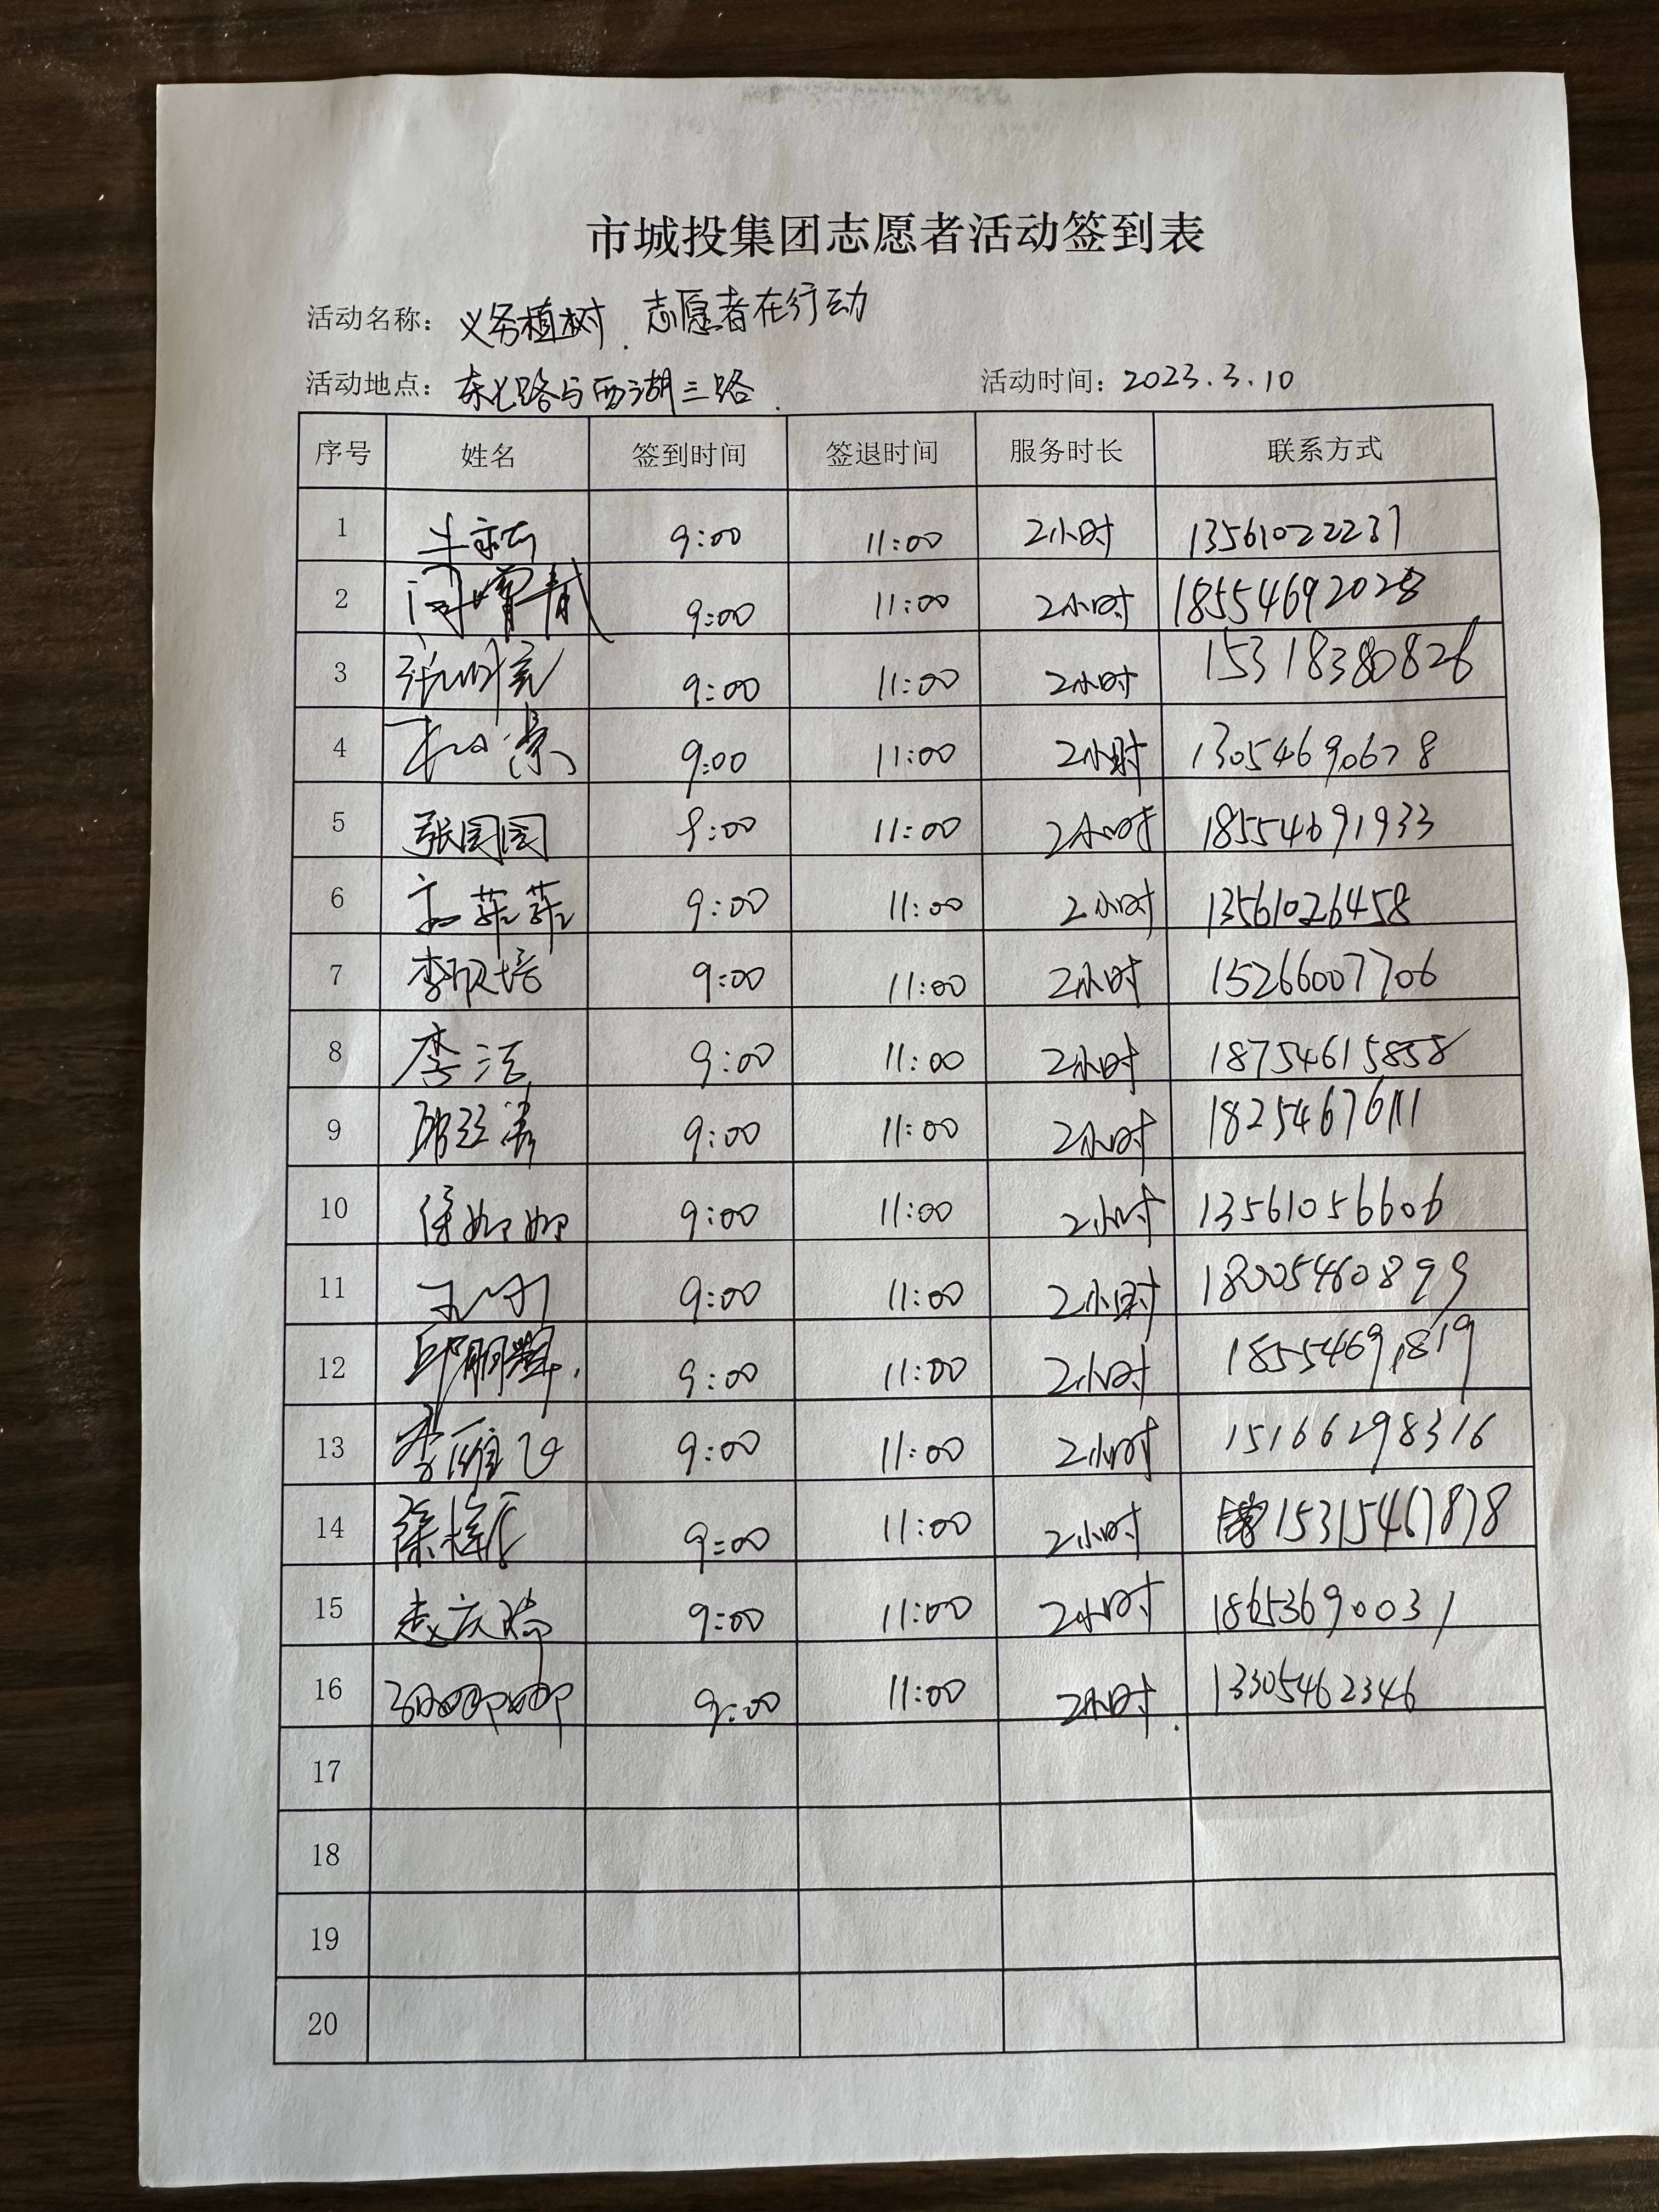 市城投集团志愿者活动签到表
活动名称：义务植树.志愿者在行动
活动地点：东七路与西湖三路. 活动时间：2023.3.10
序号 姓名 签到时间 签退时间 服务时长 联系方式
1 9:00 11:00 2小时 13561022237
2 9:00 11:00 2小时 18554692028
3 9:00 11:00 2小时 15318380826
4 9:00 11:00 2小时 13054690678
5 张园园 9:00 11:00 2小时 18554691933
6 9:00 11:00 2小时 13561026458
7 9:00 11:00 2小时 15266007706
8 李洁 9:00 11:00 2小时 18754615858
9 9:00 11:00 2小时 18254676111
10 徐娜娜 9:00 11:00 2小时 13561056606
11 9:00 11:00 2小时 18005460899
12 邱鹏辉. 9:00 11:00 2小时 18554691819
13 李维飞 9:00 11:00 2小时 15166298316
14 9:00 11:00 2小时 15315467878
15 9:00 11:00 2小时 18653690031
16 9:00 11:00 2小时. 13305462346
17
18
19
20